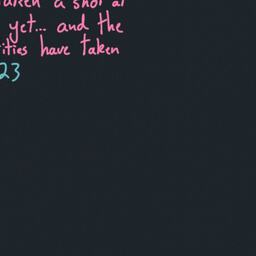 a shot at
yet... and the
ities have taken
23